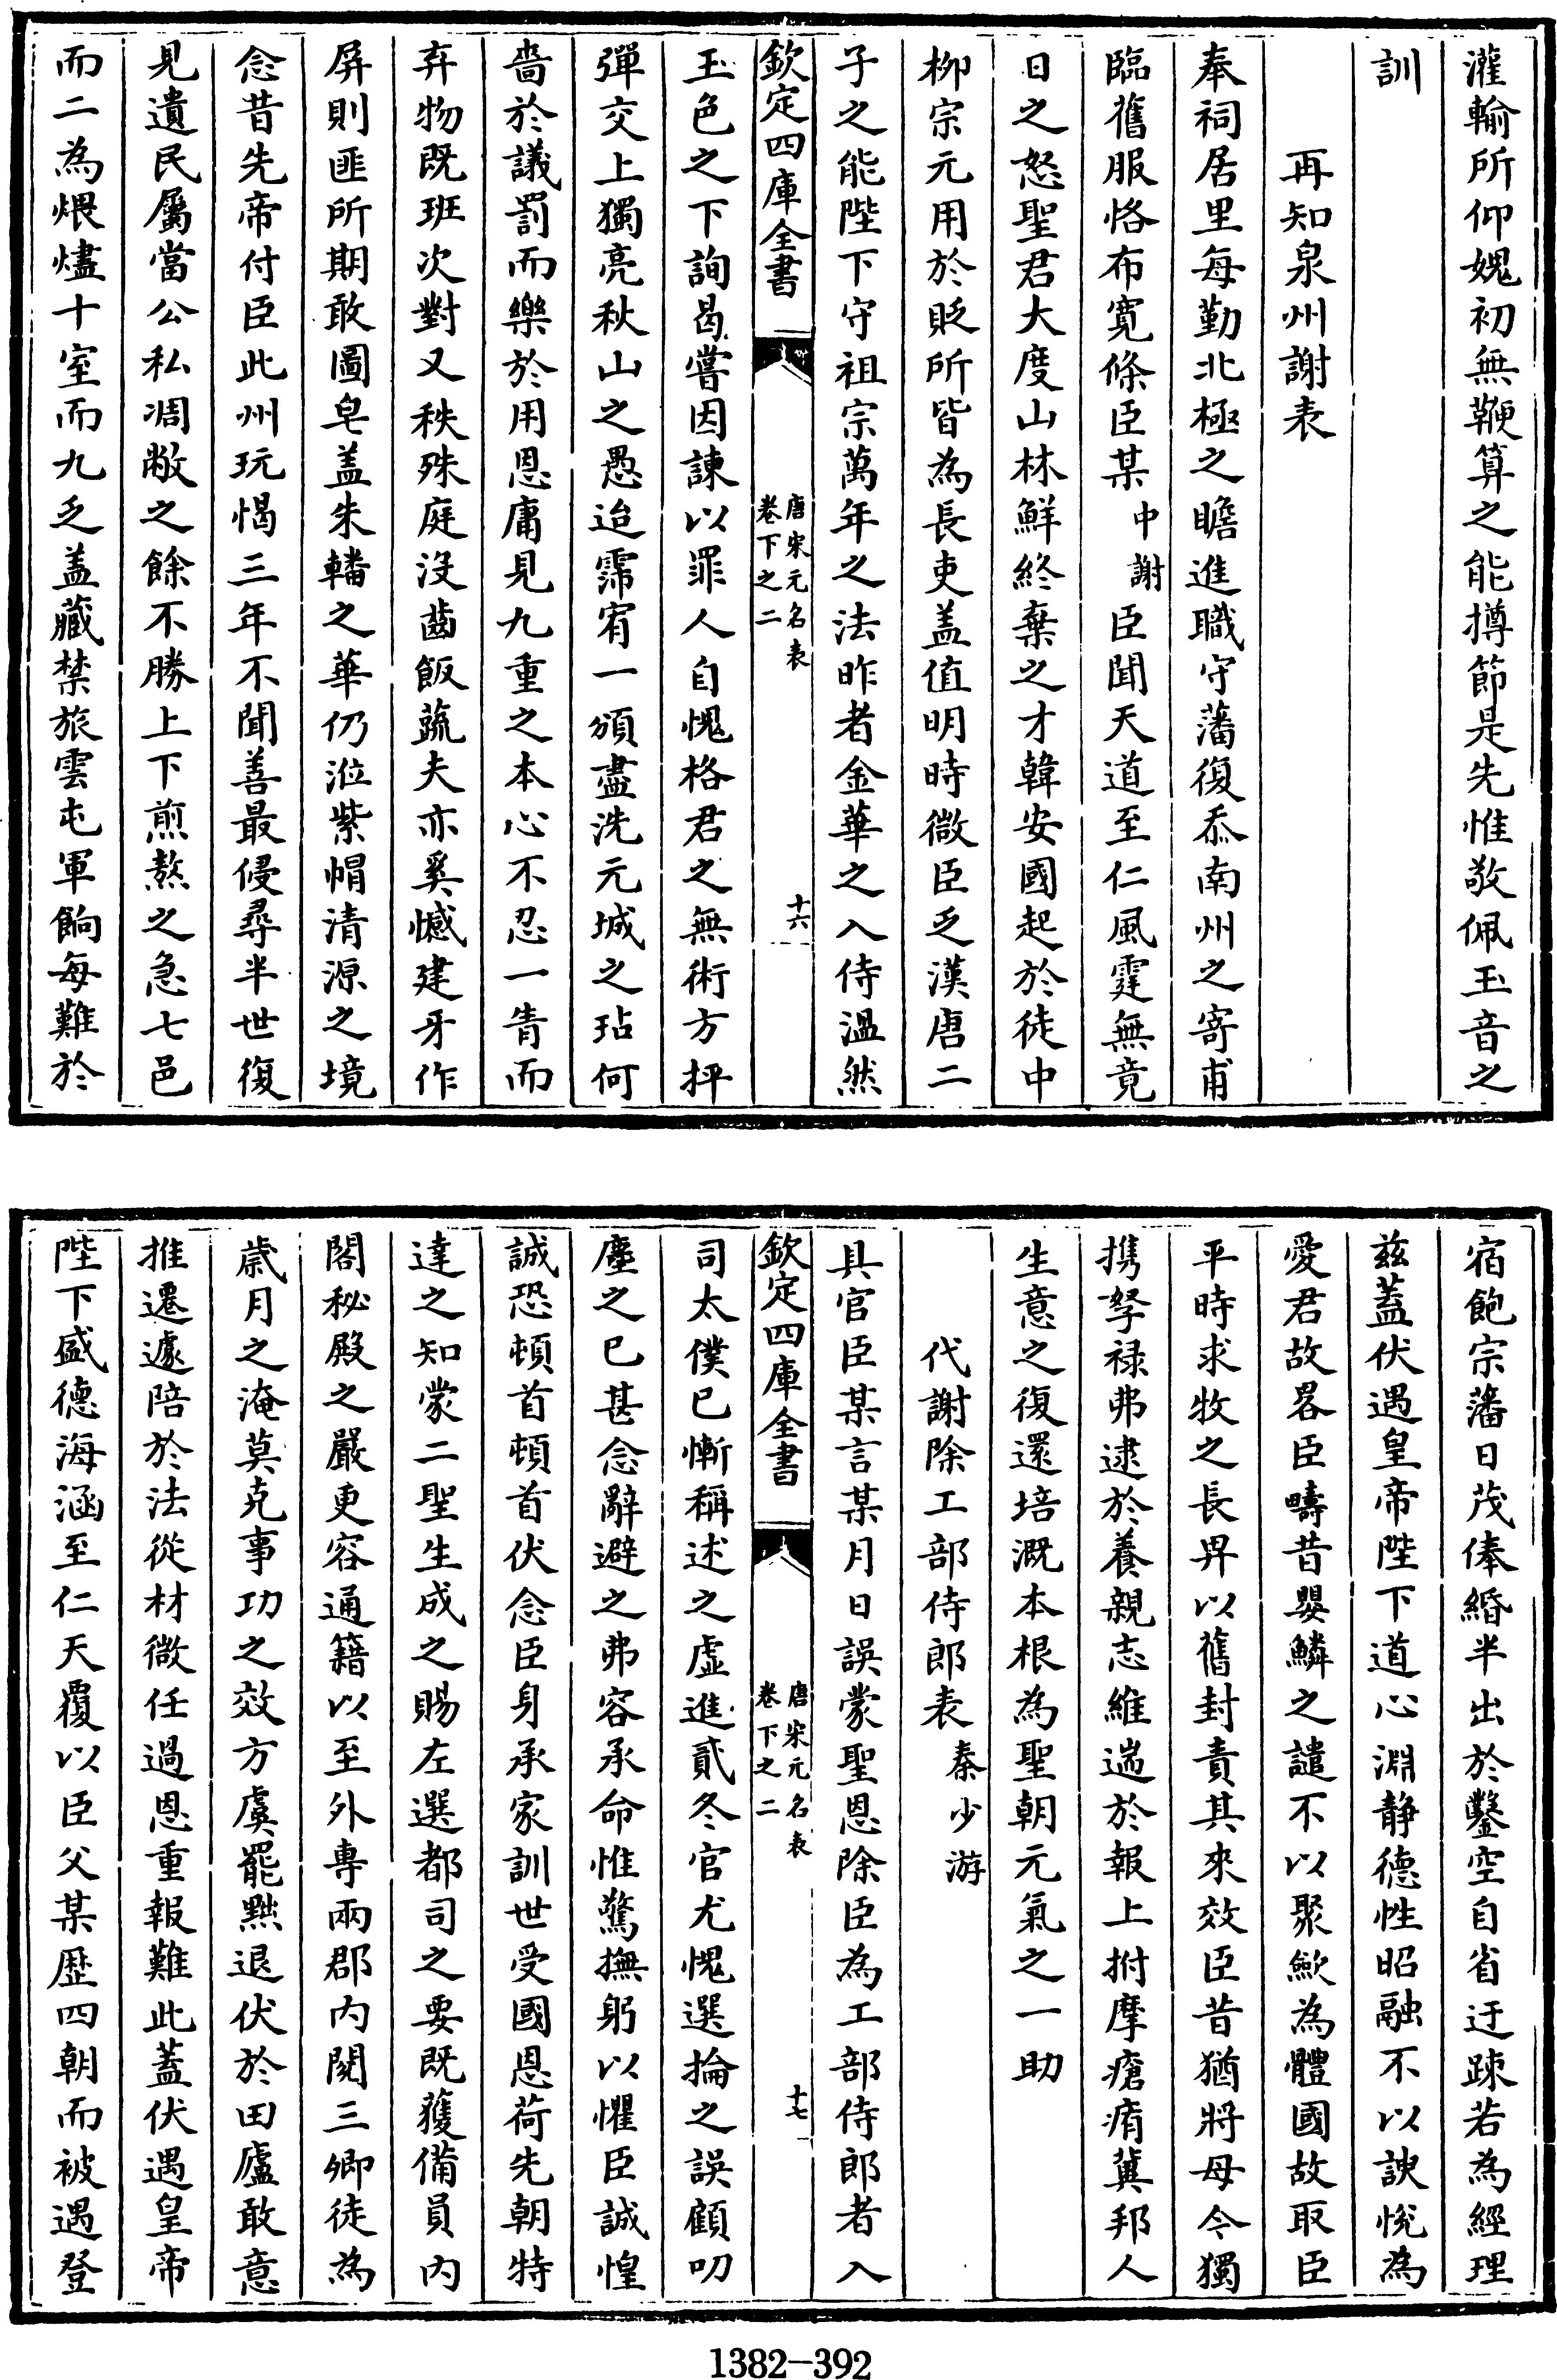 灌輸所仰媿初無鞭算之能撙節是先惟敬佩玉音之
訓
再知泉州謝表
奉祠居里每勤北極之瞻進職守藩復忝南州之寄甫
臨舊服恪布寬條臣某中謝臣聞天道至仁風霆無竟
日之怒聖君大度山林鮮終棄之才韓安國起於徒中
柳宗元用於貶所皆為長吏盖值明時微臣乏漢唐二
子之能陛下守祖宗萬年之法昨者金華之入侍溫然
欽定四庫全書
唐宋元名表
卷下之二
十六
玉色之下詢曷嘗因諫以罪人自愧格君之無術方抨
彈交上獨亮秋山之愚迨霈宥一頒盡洗元城之玷何
嗇於議罰而樂於用恩庸見九重之本心不忍一眚而
弃物既班次對又秩殊庭沒齒飯蔬夫亦奚憾建牙作
屏則匪所期敢圖皂盖朱轓之華仍涖紫帽清源之境
念昔先帝付臣此州玩愒三年不聞善最侵尋半世復
見遺民屬當公私凋敝之餘不勝上下煎熬之急七邑
而二為煨燼十室而九乏盖藏禁旅雲屯軍餉每難於
宿飽宗藩日茂俸緡半出於鑿空自省迂疎若為經理
茲蓋伏遇皇帝陛下道心淵静德性昭融不以諛悅為
愛君故畧臣疇昔嬰鱗之譴不以聚歛為體國故取臣
平時求牧之長畀以舊封責其來效臣昔猶將母今獨
携孥禄弗逮於養親志維遄於報上拊摩瘡痏冀邦人
生意之復還培溉本根為聖朝元氣之一助
代謝除工部侍郎表 秦少游
具官臣某言某月日誤蒙聖恩除臣為工部侍郎者入
欽定四庫全書
唐宋元名表
卷下之二
十七
司太僕已慚稱述之虛進貳冬官尤愧選掄之誤顧叨
塵之已甚念辭避之弗容承命惟驚撫躬以懼臣誠惶
誠恐頓首頓首伏念臣身承家訓世受國恩荷先朝特
達之知蒙二聖生成之賜左選都司之要既獲備員內
閣秘殿之嚴更容通籍以至外專兩郡內閱三卿徒為
歲月之淹莫克事功之效方虞罷黜退伏於田廬敢意
推遷遽陪於法從材微任過恩重報難此蓋伏遇皇帝
陛下盛德海涵至仁天覆以臣父某歷四朝而被遇登
1382-392